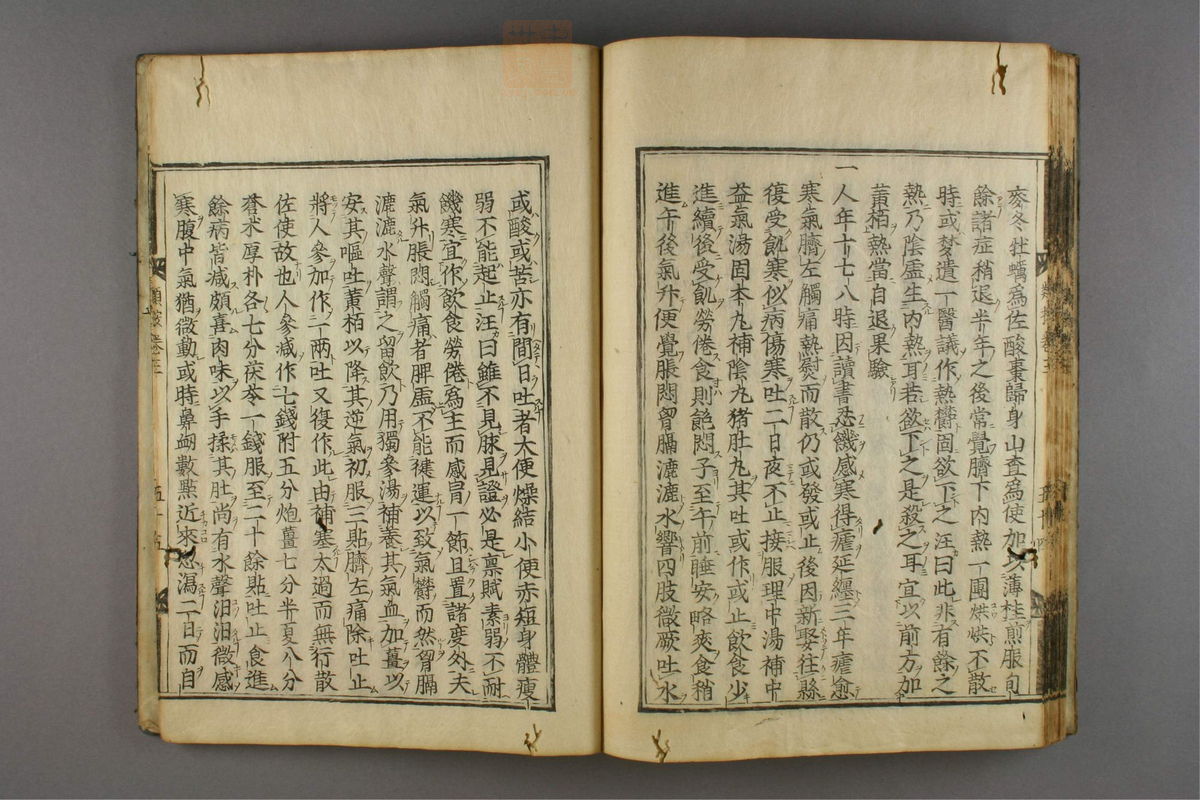 麥冬牡蠣爲佐酸棗歸身山査爲使加以薄桂煎服旬
餘諸症稍退半年之後常覺臍下内熱一團烘烘不散
時或夢遺一醫議作熱欝固欲下之汪曰此非有餘之
熱乃陰虛生内熱耳若欲下之是殺之耳宜以前方加
黄栢熱當自退果驗
一人年十七八時因讀書忍饑感寒得瘧延纏三年瘧愈
寒氣臍左觸痛熱熨而散仍或發或止後因新娶往縣
復受飢寒似病傷寒吐二日夜不止接服理中湯補中
益氣湯固本丸補陰丸猪肚丸其吐或作或止飲食少
進續後受飢勞倦食則飽悶子至午前睡安略爽食稍
進午後氣升便覺脹悶胷膈漉漉水響四肢微厥吐水
或酸或苦亦有間日吐者大便燥結小便赤短身體瘦
弱不能起止汪曰雖不見脉見證必是禀賦素弱不耐
饑寒宜作飲食勞倦爲主而感冐一節且置諸度外夫
氣升脹悶觸痛者脾虛不能健運以致氣欝而然胷膈
漉漉水聲謂之留飲乃用獨參湯補養其氣血加薑以
安其嘔吐黄栢以降其逆氣初服三貼臍左痛除吐止
將人參加作一兩吐又復作此由補塞太過而無行散
佐使故也人參減作七錢附五分炮薑七分半夏八分
蒼朮厚朴各七分茯苓一錢服至二十餘貼吐止食進
餘病皆減頗喜肉味以手揉其肚尚有水聲汩汩微感
寒腹中氣猶微動或時鼻衂數點近來忽瀉二日而自
卷三